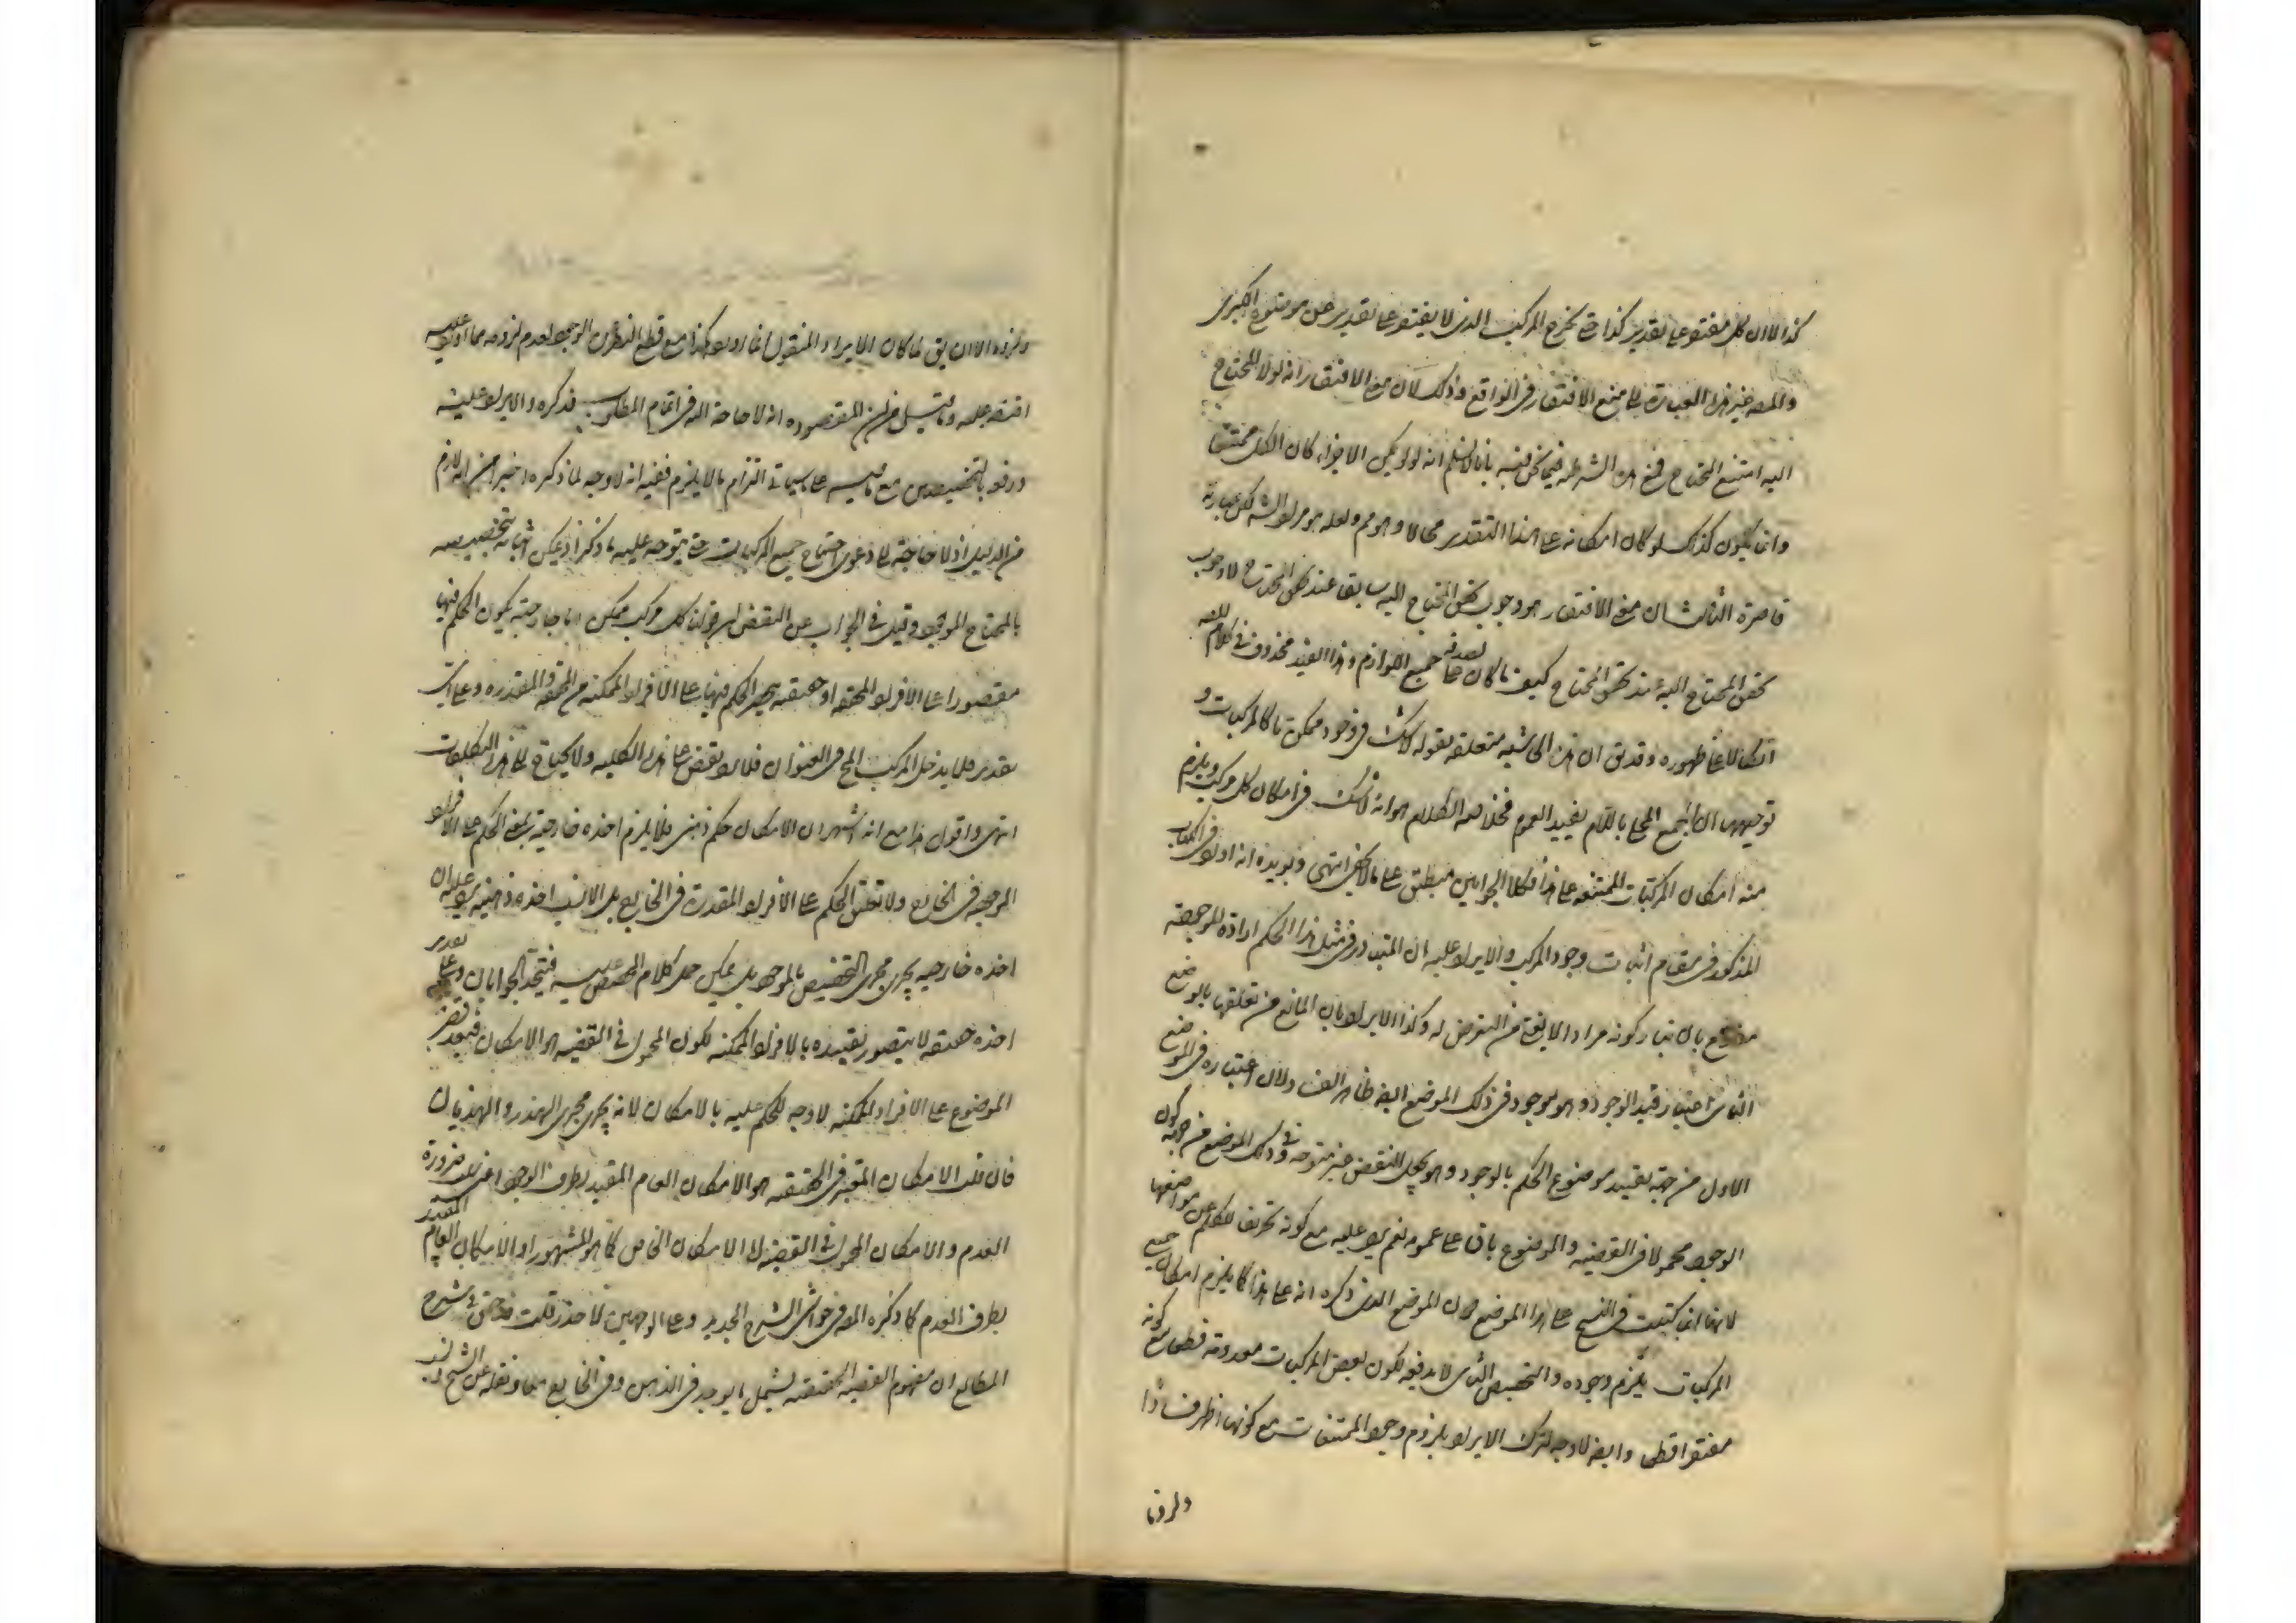 كذا لا ان كل مفتقر على تقدير كذا حتى يخرج المركب الذى لا يفتقر على تقدير عن موضوع الكبرى
والمص غير هذه العبارة الى منع الافتقار فى الواقع وذلك لان معنى الافتقار انه لولا المحتاج
اليه امتنع المحتاج فمنع هذه الشرطية فيما نحن فيه بانا لا نسلم انه لو لم يكن الاجزاء كان الكل ممتنعا
وانما يكون كذلك لو كان امكانه على هذا التقدير محالا وهو مم ولعله هو مراد الش لكن عبارته
قاصرة الثالث ان معنى الافتقار هو وجوب تحقق المحتاج اليه سابقا عند تحقق المحتاج لا وجوب
تحقق المحتاج اليه عند تحقق المحتاج كيف ما كان جميع اللوازم وهذا القيد محذوف فى كلام المص
اتكالا على ظهوره وقد يق ان هذه الحاشية متعلقة بقوله لا شك فى وجود ممكن ما كالمركبات و
توجيهها ان الجمع المحلى باللام يفيد العموم فخلاصة الكلام هو انه لا شك فى امكان كل مركب ويلزم
منه امكان المركبات الممتنعة على هذا فكلا الجوابين منطبق على ما لا يخفى انتهى ويؤيده انه اورد فى الكتاب
المذكور فى مقام اثبات وجود المركب والايراد عليه ان المتبادر فى مثل هذا الحكم ارادة الموجبة
مدفوع بان تبادر كونه مرادا لا يغنى من التعرض له وكذا الايراد بان المانع من تعلقها بالموضع
الثانى اعتبار قيد الوجود وهو موجود فى ذلك الموضع ايضا ظاهر الدفع ولان اعتباره فى الموضع
الاول من جهة تقييد موضوع الحكم بالوجود وهو يجعل النقض غير متوجه وفى ذلك الموضع من جهة كون
الوجود محمولا فى القضية والموضوع باق على عمومه نعم يرد عليه مع كونه تحريف الكلم عن مواضعها
لانها انما كتبت فى النسخ على هذا الموضع دون الموضع الذى ذكره انه على هذا كما يلزم امكان جميع
المركبات يلزم وجوده والتخصيص الثانى لا يدفعه لكون بعض المركبات معدومة قطعا مع كونه
مفتقرا قطعا وايضا لا وجه لترك الايراد بلزوم وجود الممتنعات مع كونها اظهر فسادا
الا ان يق لما كان الايراد المنقول انما اورد هكذا مع قطع النظر عن الوجود لعدم لزومه مما اورد عليه
اقتصر عليه وما قيل من ان المقصود انه لا حاجة اليه فى اتمام المطلوب فذكره والايراد عليه
ودفعه بالتخصيص مع ما فيه على ما سياتى التزام ما لا يلزم ففيه انه لا وجه لما ذكره اخيرا من انه لازم
من الدليل اذ لا حاجة الى دعوى احتياج جميع المركبات حتى يتوجه عليه ما ذكر اذ يمكن اثباته بتخصيصه
بالمحتاج الموجود وقيل فى الجواب عن النقض ان قولنا كل مركب ممكن اما خارجية يكون الحكم فيها
مقصورا على الافراد المحققة او حقيقية يصير الحكم فيها على الافراد الممكنة من المحققة والمقدرة وعلى اى
تقدير فلا يدخل المركب المح فى العنوان فلا يرد نقض على هذه الكلية ولا يحتاج الى هذه التكلفات
انتهى واقول هذا مع انه اشتهر ان الامكان حكم ذهنى فلا يلزم اخذه خارجية بمعنى الحكم على الافراد
الموجودة فى الخارج ولا تعلق الحكم على الافراد المقدرة فى الخارج بل الانسب اخذه ذهنية يرد عليه ان
اخذه خارجية يجرى مجرى التخصيص بالموجود بل يمكن حمل كلام المص عليه فيتحد الجوابان وعلى تقدير
اخذه حقيقية لا يتصور تقييده بالافراد الممكنة لكون المحمول فى القضية هو الامكان فبعد قصر
الموضوع على الافراد الممكنة لا وجه للحكم عليه بالامكان لانه يجرى مجرى الهذر والهذيان
فان قلت الامكان المعتبر فى الحقيقية هو الامكان العام المقيد بطرف الوجود اعنى سلب ضرورة
العدم والامكان المحمول فى القضية لا الامكان الخاص كما هو المشهور او الامكان العام المقيد
بطرف العدم كما ذكره المص فى حواشى الشرح الجديد وعلى الوجهين لا حذر قلت قد حقق فى شرح
المطالع ان مفهوم القضية الحقيقية يشمل ما يوجد فى الذهن وفى الخارج معا ونقله عن الشيخ